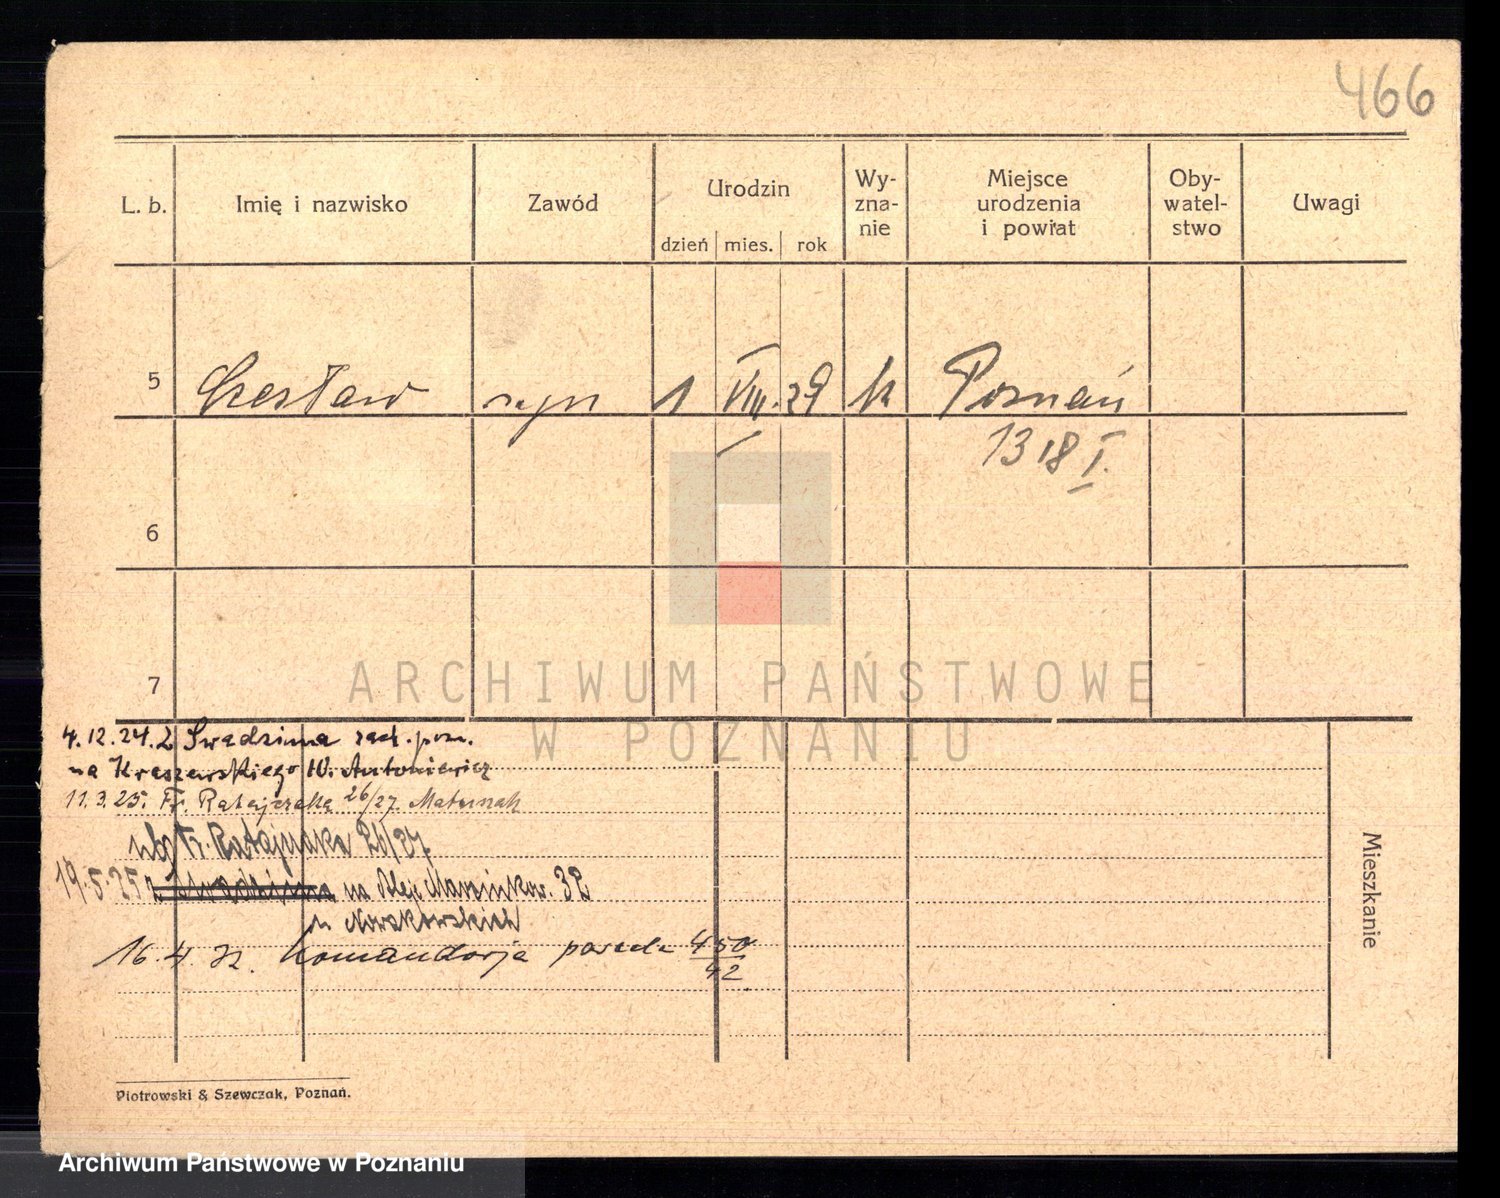 466
L. b.
Imię i nazwisko
Zawód
Urodzin
dzień mies. rok
Wy-
zna-
nie
Miejsce
urodzenia
i powiat
Oby-
watel-
stwo
Uwagi
5 Czesław syn 1 VIII. 29 k Poznań
1318 I.
6
7
ARCHIWUM PAŃSTWOWE
W POZNANIU
4.12.24. z Swadzima
na Kraszewskiego 10. Antoniewicz
11.3.25. Fr. Ratajczaka 26/27. Matuszak
Fr. Ratajczaka 26/27
19.5.25 na Alej. Marcinkow. 32
u Nowakowskich
16.4.32. Komandorja parcela 450/42
Mieszkanie
Piotrowski & Szewczak, Poznań.
Archiwum Państwowe w Poznaniu